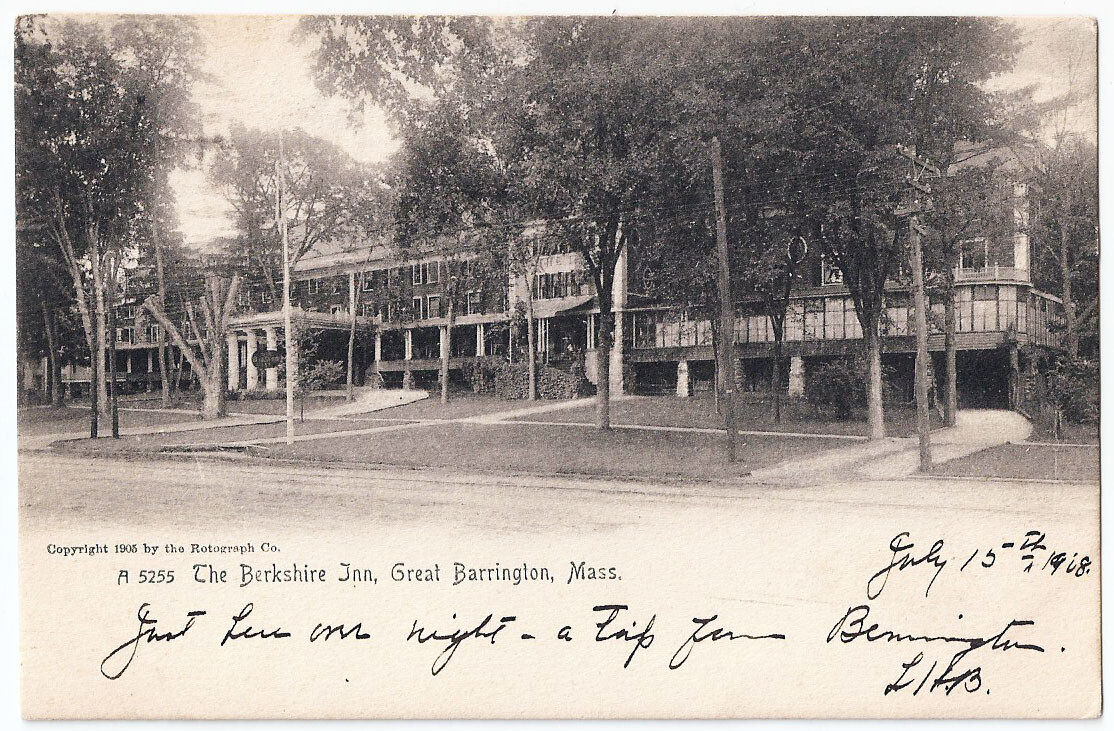 Copyright 1905 by the Rotograph Co.
A 5255 The Berkshire Inn, Great Barrington, Mass.
July 15th 1918.
Just here over night - a trip from Bennington.
LHB.